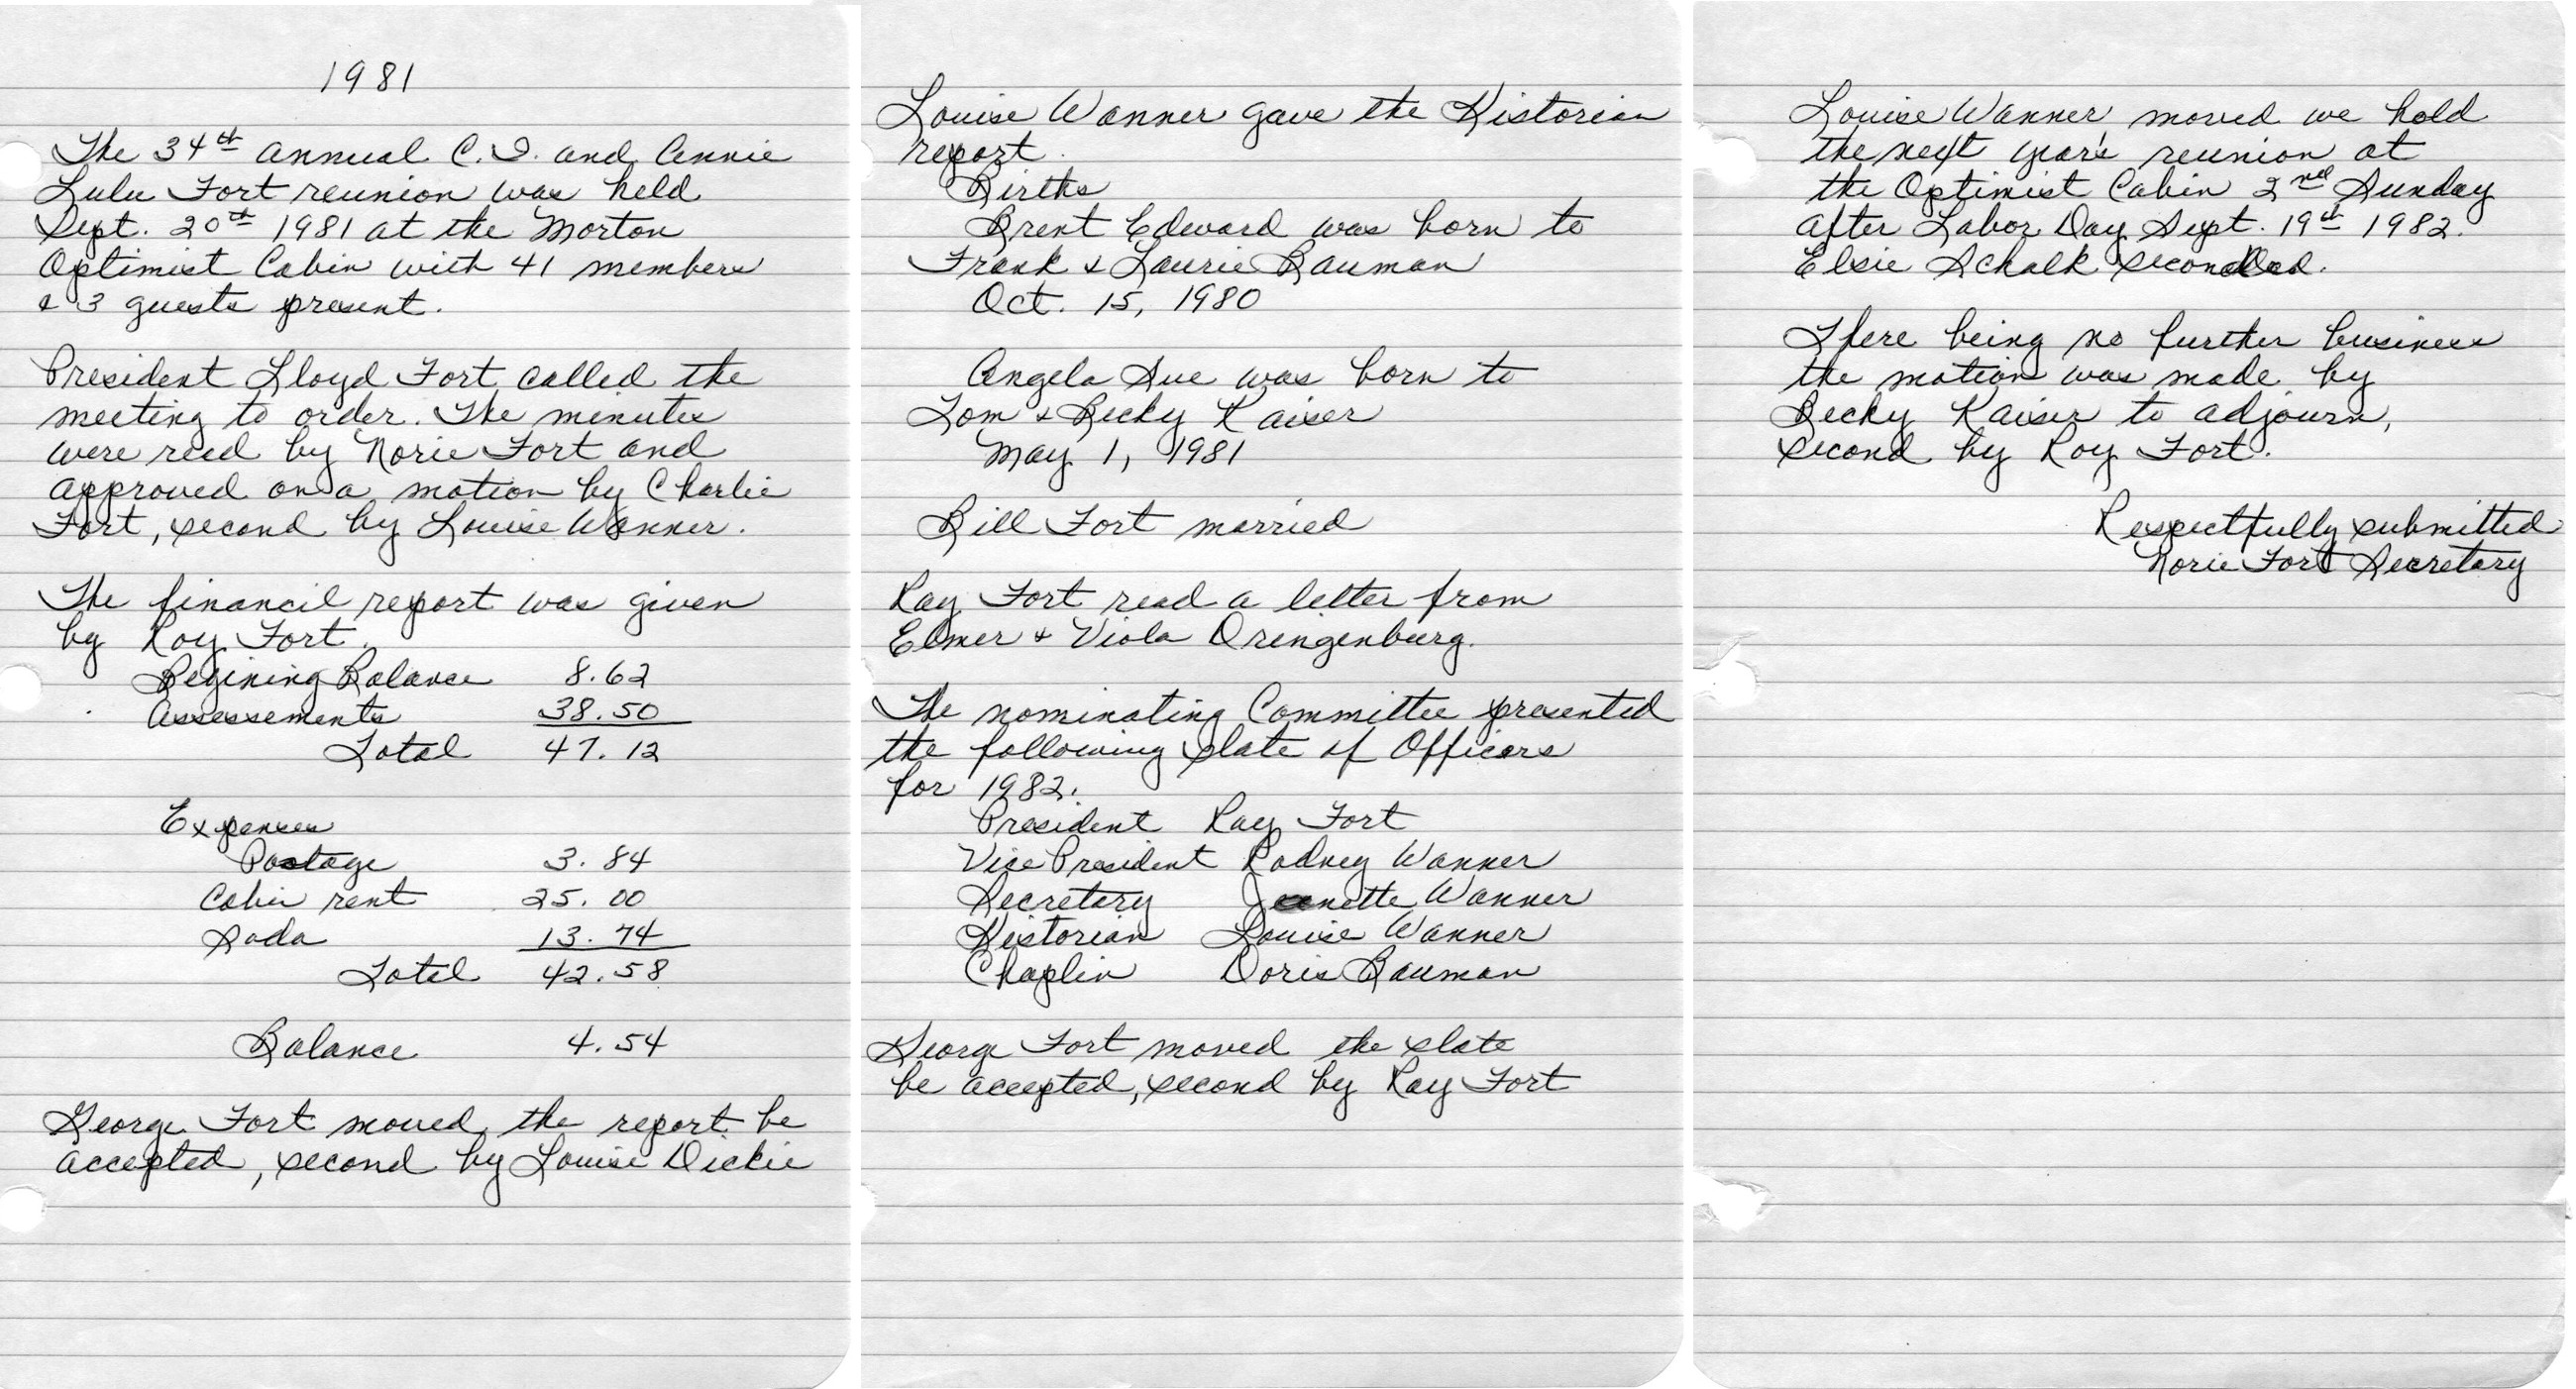 1981
The 34th annual C.I. and Annie
Lulu Fort reunion was held
Sept. 20th 1981 at the Morton
Optimist Cabin with 41 members
& 3 guests present.
President Lloyd Fort called the
meeting to order. The minutes
were read by Norie Fort and
approved on a motion by Charlie
Fort, second by Louise Wanner.
The financil report was given
by Roy Fort.
Begining Balance 8.62
Assessements 38.50
Total 47.12
Expenses
Postage 3.84
Cabin rent 25.00
Soda 13.74
Total 42.58
Balance 4.54
George Fort moved the report be
accepted, second by Louise Dickie
Louise Wanner gave the Historian
report.
Births
Brent Edward was born to
Frank & Laurie Bauman
Oct. 15, 1980
Angela Sue was born to
Tom & Becky Kaiser
May 1, 1981
Bill Fort married
Ray Fort read a letter from
Elmer & Viola Dringenburg.
The nominating Committee presented
the following slate of Officers
for 1982.
President Ray Fort
Vice President Rodney Wanner
Secretary Jeanette Wanner
Historian Louise Wanner
Chaplin Doris Bauman
George Fort moved the slate
be accepted, second by Ray Fort
Louise Wanner moved we hold
the next year's reunion at
the Optimist Cabin 2nd Sunday
after Labor Day Sept. 19th 1982.
Elsie Schalk seconded.
There being no further business
the motion was made by
Becky Kaiser to adjourn,
second by Roy Fort.
Respectfully submitted
Norie Fort Secretary